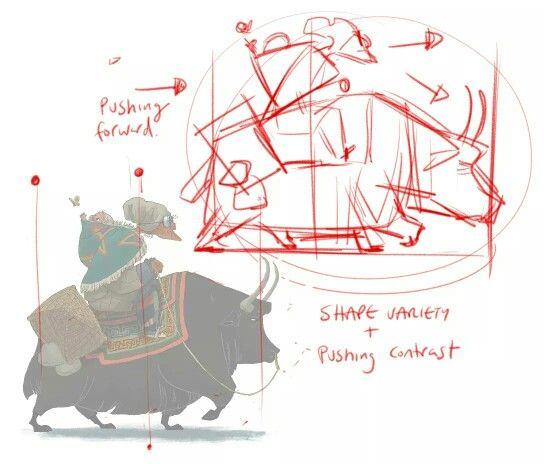 Pushing
forward.
SHAPE VARIETY
+
Pushing Contrast